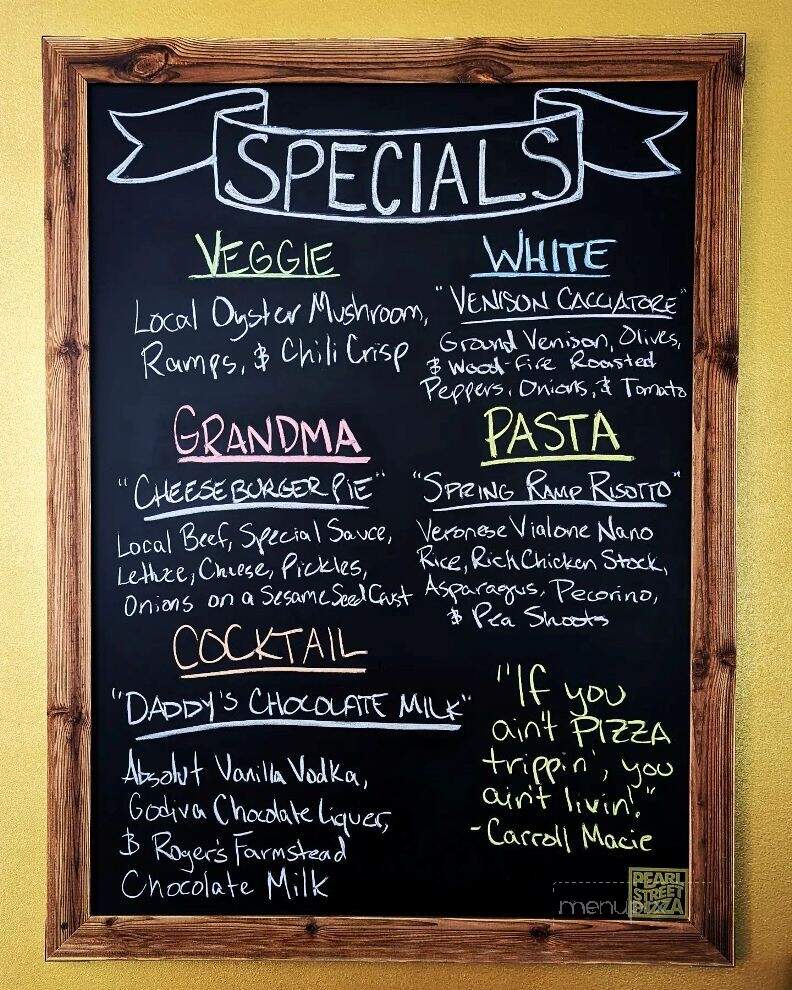 SPECIALS
VEGGIE
Local Oyster Mushroom,
Ramps, & Chili Crisp
WHITE
"VENISON CACCIATORE"
Ground Venison, Olives,
& Wood-Fire Roasted
Peppers, Onions, & Tomato
GRANDMA
"CHEESEBURGER PIE"
Local Beef, Special Sauce,
Lettuce, Cheese, Pickles,
Onions on a Sesame Seed Crust
PASTA
"SPRING RAMP RISOTTO"
Veronese Vialone Nano
Rice, Rich Chicken Stock,
Asparagus, Pecorino,
& Pea Shoots
COCKTAIL
"DADDY'S CHOCOLATE MILK"
Absolut Vanilla Vodka,
Godiva Chocolate Liquer,
& Roger's Farmstead
Chocolate Milk
"If you
ain't PIZZA
trippin', you
ain't livin!"
-Carroll Macie
PEARL
STREET
PIZZA
menu